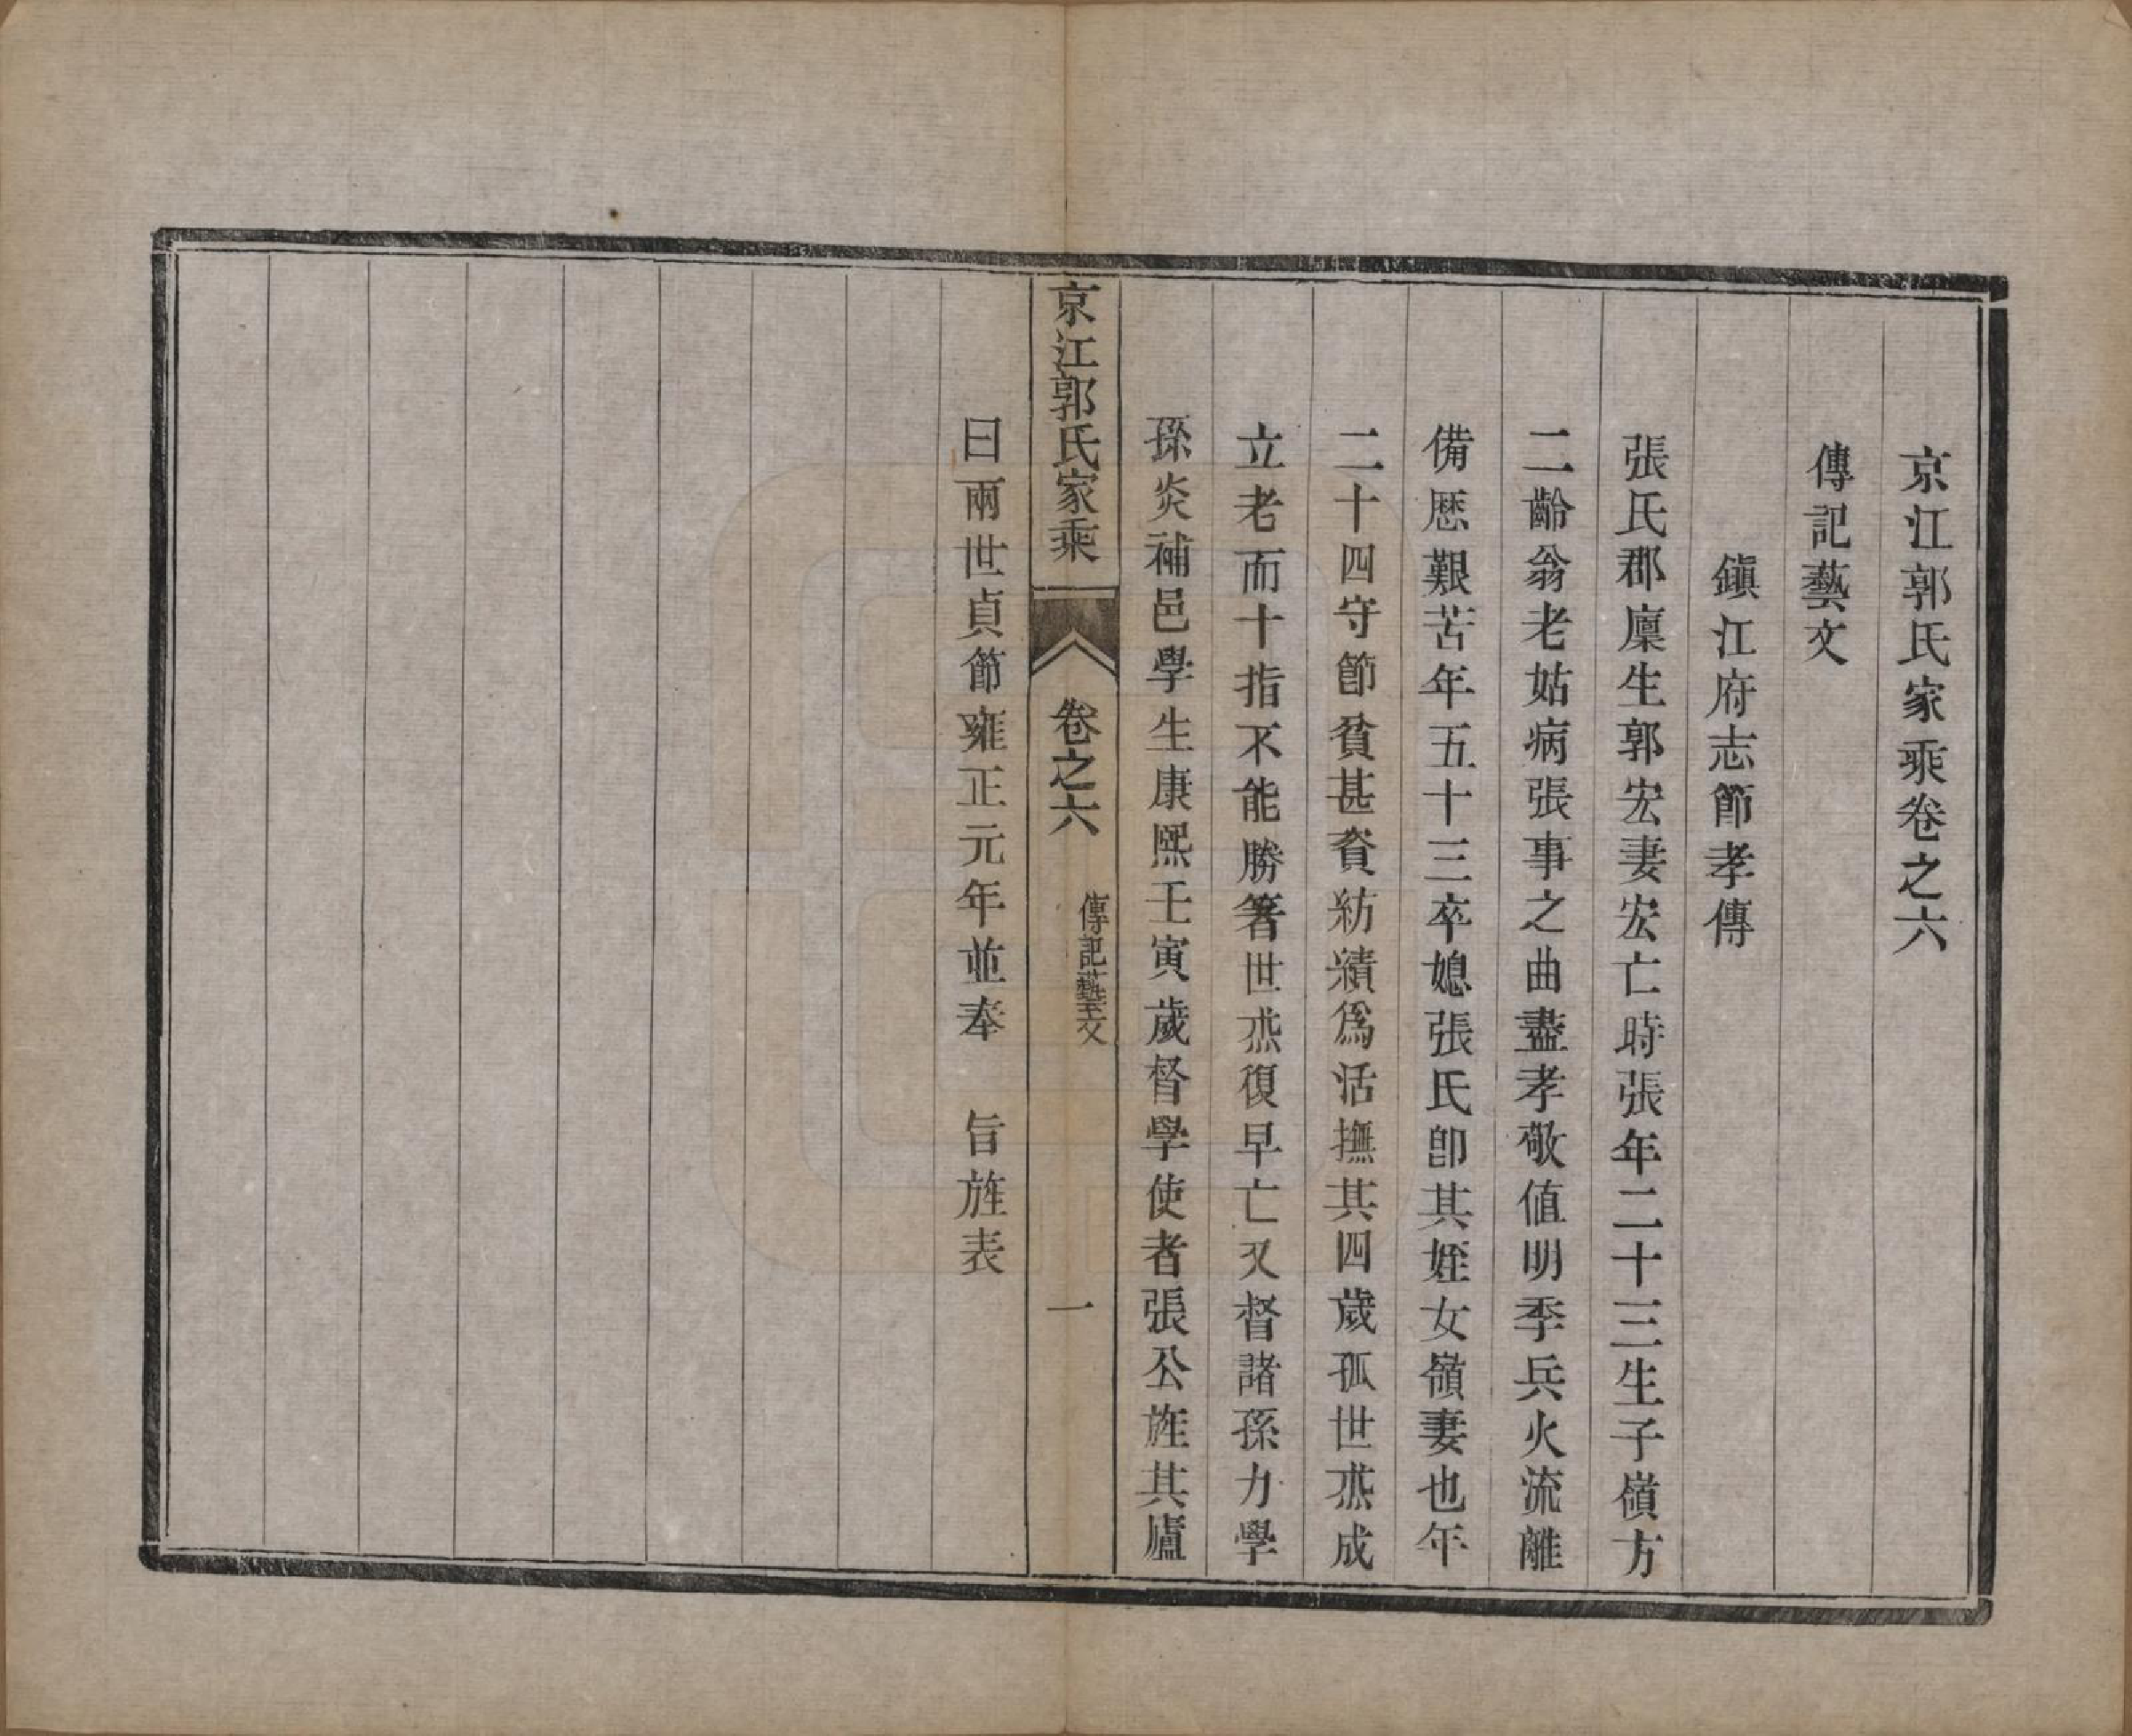 京江郭氏家乘卷之六
傳記藝文
鎭江府志節孝傳
張氏郡廩生郭宏妻宏亡時張年二十三生子嶺方
二齡翁老姑病張事之曲盡孝敬値明季兵火流離
備厯艱苦年五十三卒媳張氏卽其姪女嶺妻也年
二十四守節貧甚資紡績爲活撫其四歲孤世燕成
立老而十指不能勝箸世燕復早亡又督諸孫力學
孫炎補邑學生康熙壬寅歲督學使者張公旌其廬
京江郭氏家乘
卷之六
傳記藝文
一
曰兩世貞節雍正元年並奉　旨旌表